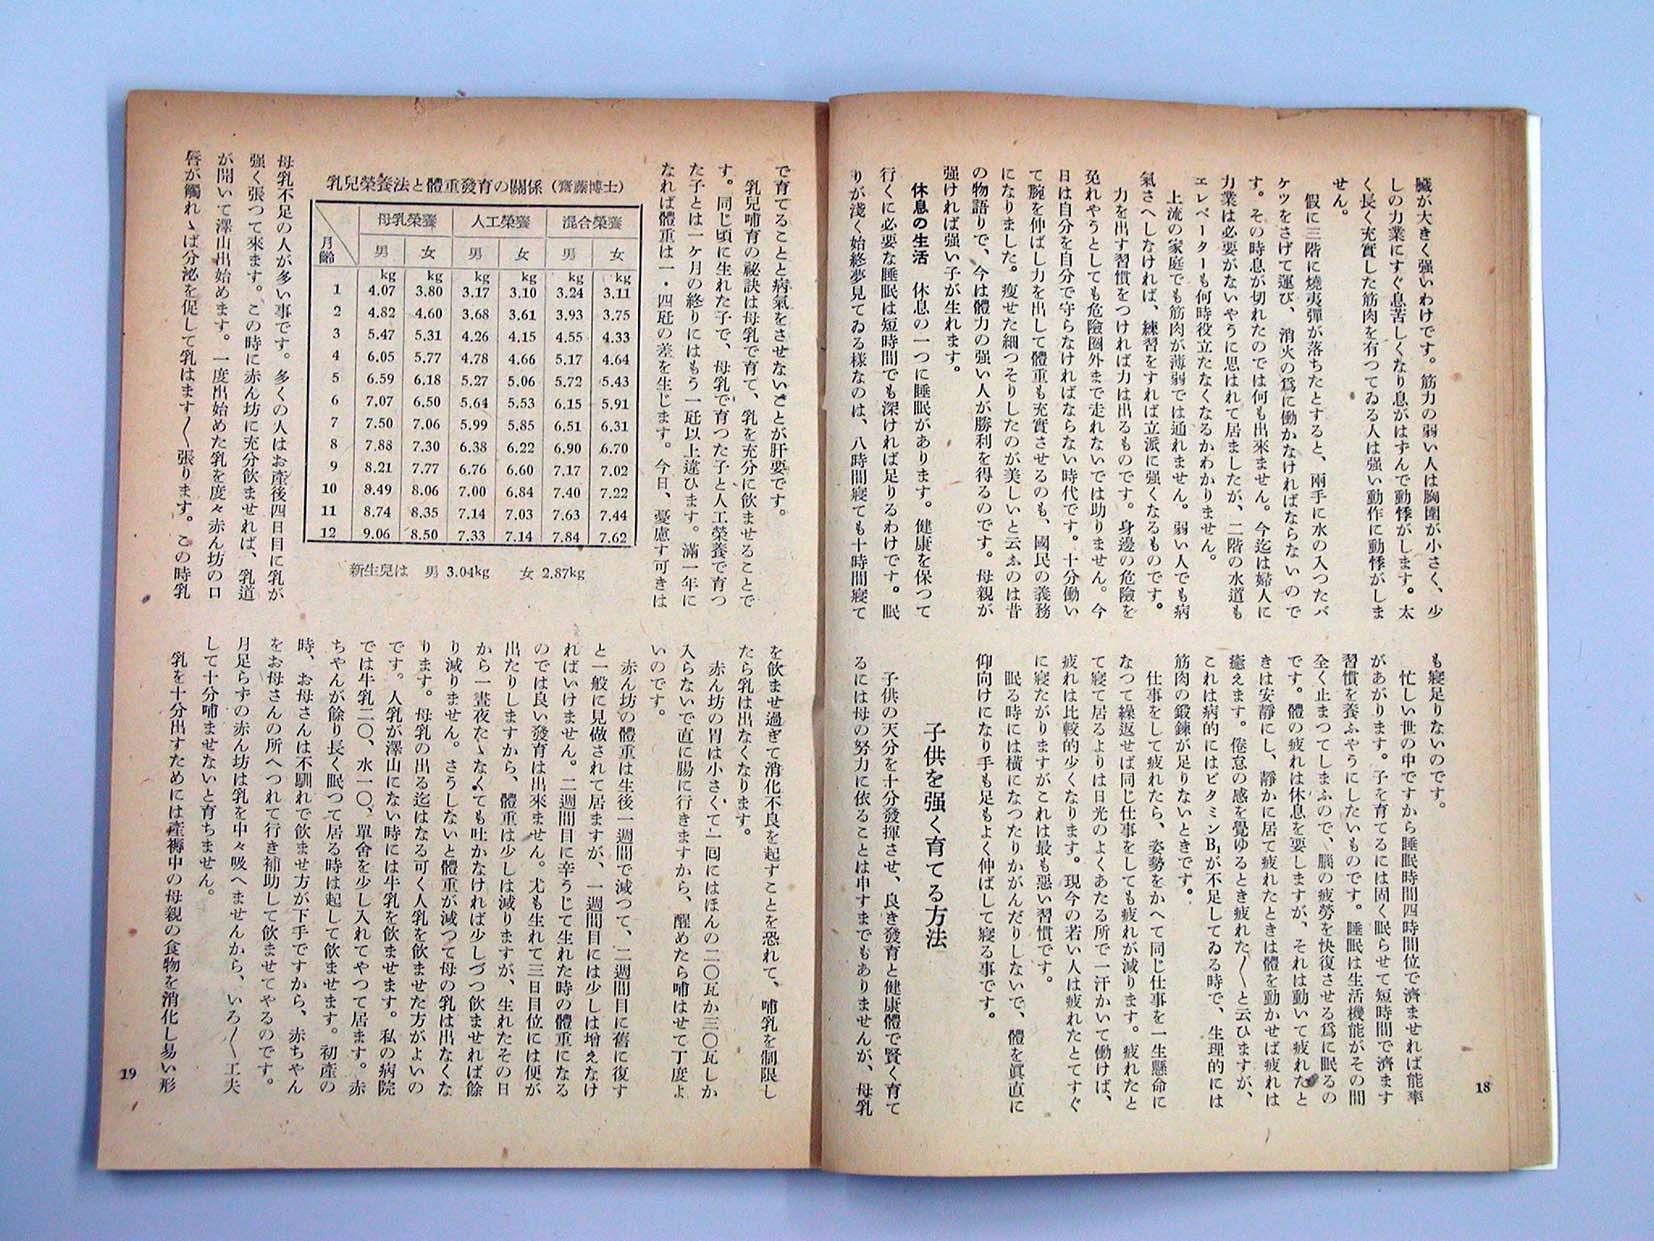 臟が大きく强いわけです。筋力の弱い人は胸圍が小さく、少
しの力業にすぐ息苦しくなり息がはずんで動悸がします。太
く長く充實した筋肉を有つてゐる人は强い動作に動悸がしま
せん。
假に三階に燒夷彈が落ちたとすると、兩手に水の入つたバ
ケツをさげて運び、消火の爲に働かなければならないので
す。その時息が切れたのでは何も出來ません。今迄は婦人に
力業は必要がないやうに思はれて居ましたが、二階の水道も
エレベーターも何時役立たなくなるかわかりません。
上流の家庭でも筋肉が薄弱では通れません。弱い人でも病
氣さへしなければ、練習をすれば立派に强くなるものです。
力を出す習慣をつければ力は出るものです。身邊の危險を
免れやうとしても危險圈外まで走れないでは助りません。今
日は自分を自分で守らなければならない時代です。十分働い
て腕を伸ばし力を出して體重も充實させるのも、國民の義務
になりました。瘦せた細つそりしたのが美しいと云ふのは昔
の物語りで、今は體力の强い人が勝利を得るのです。母親が
强ければ强い子が生れます。
休息の生活 休息の一つに睡眠があります。健康を保つて
行くに必要な睡眠は短時間でも深ければ足りるわけです。眠
りが淺く始終夢見てゐる樣なのは、八時間寢ても十時間寢て
も寢足りないのです。
忙しい世の中ですから睡眠時間四時間位で濟ませれば能率
があがります。子を育てるには固く眠らせて短時間で濟ます
習慣を養ふやうにしたいものです。睡眠は生活機能がその間
全く止まつてしまふので、腦の疲勞を快復させる爲に眠るの
です。體の疲れは休息を要しますが、それは動いて疲れたと
きは安靜にし、靜かに居て疲れたときは體を動かせば疲れは
癒えます。倦怠の感を覺ゆるとき疲れた〱と云ひますが、
これは病的にはビタミンB₁が不足してゐる時で、生理的には
筋肉の鍛鍊が足りないときです。
仕事をして疲れたら、姿勢をかへて同じ仕事を一生懸命に
なつて繰返せば同じ仕事をしても疲れが減ります。疲れたと
て寢て居るよりは日光のよくあたる所で一汗かいて働けば、
疲れは比較的少くなります。現今の若い人は疲れたとてすぐ
に寢たがりますがこれは最も惡い習慣です。
眠る時には橫になつたりかがんだりしないで、體を眞直に
仰向けになり手も足もよく伸ばして寢る事です。
子供を强く育てる方法
子供の天分を十分發揮させ、良き發育と健康體で賢く育て
るには母の努力に依ることは申すまでもありませんが、母乳
18
で育てることと病氣をさせないことが肝要です。
乳兒哺育の祕訣は母乳で育て、乳を充分に飮ませることで
す。同じ頃に生れた子で、母乳で育つた子と人工榮養で育つ
た子とは一ヶ月の終りにはもう一瓩以上違ひます。滿一年に
なれば體重は一・四瓩の差を生じます。今日、憂慮す可きは
乳兒榮養法と體重發育の關係(齋藤博士)
月齡 母乳榮養 人工榮養 混合榮養
男 女 男 女 男 女
kg kg kg kg kg kg
1 4.07 3.80 3.17 3.10 3.24 3.11
2 4.82 4.60 3.68 3.61 3.93 3.75
3 5.47 5.31 4.26 4.15 4.55 4.33
4 6.05 5.77 4.78 4.66 5.17 4.64
5 6.59 6.18 5.27 5.06 5.72 5.43
6 7.07 6.50 5.64 5.53 6.15 5.91
7 7.50 7.06 5.99 5.85 6.51 6.31
8 7.88 7.30 6.38 6.22 6.90 6.70
9 8.21 7.77 6.76 6.60 7.17 7.02
10 8.49 8.06 7.00 6.84 7.40 7.22
11 8.74 8.35 7.14 7.03 7.63 7.44
12 9.06 8.50 7.33 7.14 7.84 7.62
新生兒は 男 3.04kg 女 2.87kg
母乳不足の人が多い事です。多くの人はお產後四日目に乳が
强く張つて來ます。この時に赤ん坊に充分飮ませれば、乳道
が開いて澤山出始めます。一度出始めた乳を度々赤ん坊の口
唇が觸れゝば分泌を促して乳はます〱張ります。この時乳
を飮ませ過ぎて消化不良を起すことを恐れて、哺乳を制限し
たら乳は出なくなります。
赤ん坊の胃は小さくて一囘にはほんの二〇瓦か三〇瓦しか
入らないで直に腸に行きますから、醒めたら哺はせて丁度よ
いのです。
赤ん坊の體重は生後一週間で減つて、二週間目に舊に復す
と一般に見做されて居ますが、一週間目には少しは增えなけ
ればいけません。二週間目に辛うじて生れた時の體重になる
のでは良い發育は出來ません。尤も生れて三日目位には便が
出たりしますから、體重は少しは減りますが、生れたその日
から一晝夜たゝなくても吐かなければ少しづつ飮ませれば餘
り減りません。さうしないと體重が減つて母の乳は出なくな
ります。母乳の出る迄はなる可く人乳を飮ませた方がよいの
です。人乳が澤山にない時には牛乳を飮ませます。私の病院
では牛乳二〇、水一〇、單舍を少し入れてやつて居ます。赤
ちやんが餘り長く眠つて居る時は起して飮ませます。初產の
時、お母さんは不馴れで飮ませ方が下手ですから、赤ちやん
をお母さんの所へつれて行き補助して飮ませてやるのです。
月足らずの赤ん坊は乳を中々吸へませんから、いろ〱工夫
して十分哺ませないと育ちません。
乳を十分出すためには產褥中の母親の食物を消化し易い形
19